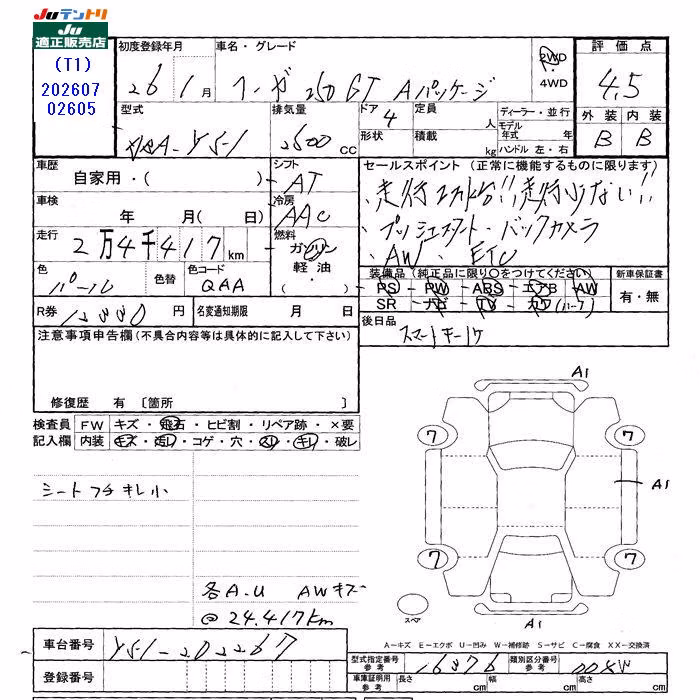 JUテントリ
JU
適正販売店
(T1)
202607
02605
初度登録年月
26年1月
車名・グレード
フーガ 250GT Aパッケージ
2WD
4WD
評価点
4.5
外装 内装
B B
型式
DBA-Y51
排気量
2500cc
ドア 4
形状
定員 人
積載 kg
ディーラー・並行
モデル年式 年
ハンドル 左・右
車歴
自家用・( )
シフト
AT
セールスポイント (正常に機能するものに限ります)
・走行2万km!!走行少ない!!
・プッシュスタート・バックカメラ
・AW・ETC
車検
年 月( 日)
冷房
AAC
走行
2万4千417km
燃料
ガソリン
軽油
色
パール
色替
色コード
QAA
装備品 (純正品に限り○をつけてください)
PS PW ABS エアB AW
SR ナビ TV カワ(ハーフ)
新車保証書
有・無
R券 円
名変通知期限 月 日
後日品
スマートキー1ケ
注意事項申告欄(不具合内容等は具体的に記入して下さい)
修復歴 有 〔箇所 〕
検査員記入欄
FW キズ・飛石・ヒビ割・リペア跡・×要
内装 キズ・汚レ・コゲ・穴・スレ・キレ・破レ
シートフチキレ小
各A.U AWキズ
@24.417km
A1
7
7
A1
7
7
スペア
A1
A-キズ E-エクボ U-凹み W-補修跡 S-サビ C-腐食 XX-交換済
車台番号
Y51-202267
登録番号
型式指定番号参考 16876
類別区分番号参考
車庫証明用参考 長さ cm 幅 cm 高さ cm